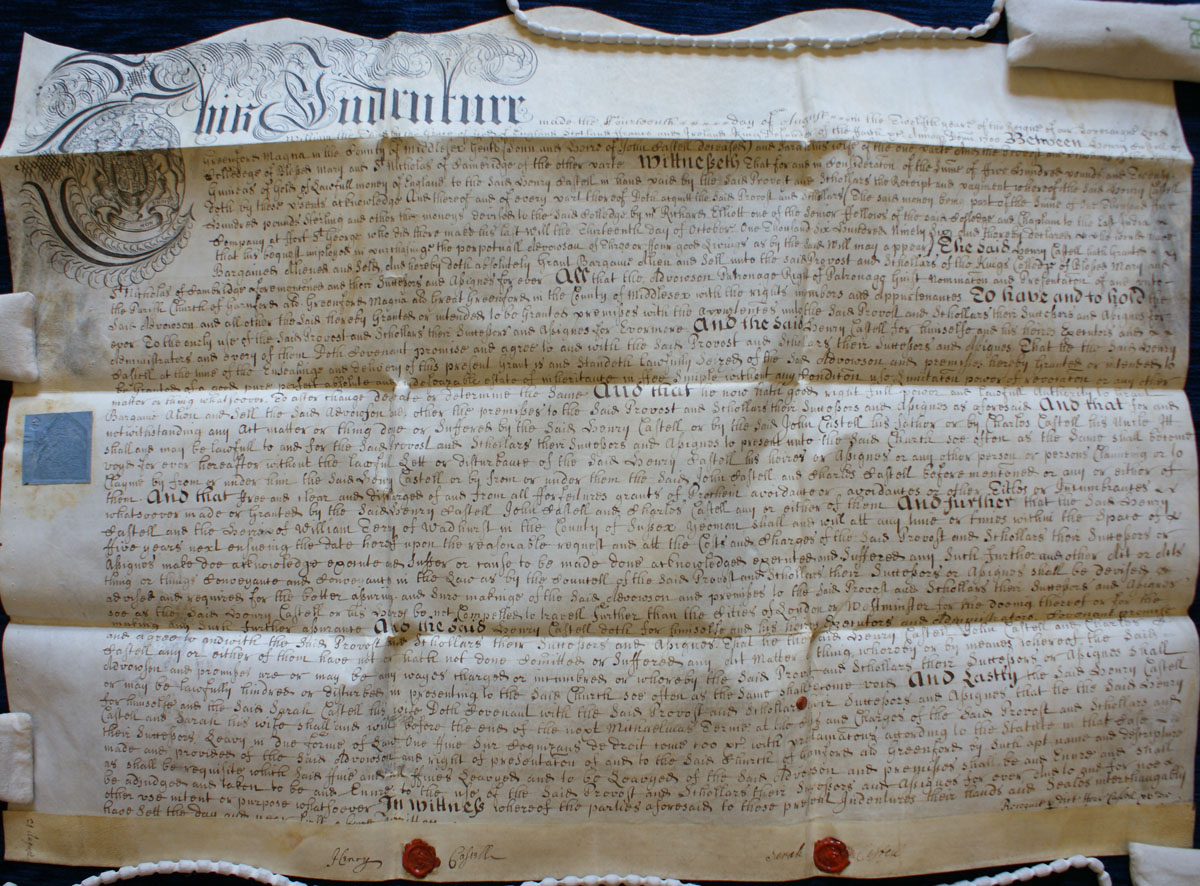 This Indenture made the Fourteenth day of August in the Twelfth yeare of the Reigne of our Sovereigne Lord
William the Third by the Grace of God of England Scotland France and Ireland King Defender of the Faith Between Henry Castell of
Greenford Magna in the County of Middlesex Sonn and Heire of John Castell deceased and Sarah his wife of the one parte And the Provost and
Colledge of Blessed Mary and St Nicholas of Cambridge of the other parte Wittnesseth That for and in Consideracon of the Summ of five Hundred pounds and Twenty
Guineas of Gold of Lawfull money of England to the Said Henry Castell in hand paid by the Said Provost and Schollars the Receipt and payment whereof the Said Henry Castell
doth by these presents acknowledge And thereof and of every part thereof Doth acquitt the Said Provost and Schollars (The said money being part of the Summ of
Hundred pounds Sterling and other the moneys devised to the Said Colledge by Mr Richard Elliott one of the Senior Fellowes of the said Colledge and Chaplain to the East India
Company at ffort St George who did there make his last Will the Thirteenth day of October One Thousand Six Hundred Ninety and thereby declared
that his bequest imployed in purchasinge the perpetuall advowson of three or four good Livings as by the said Will may appear) The Said Henry Castell hath Granted
Bargained Aliened and Sold and hereby doth absolutely Grant Bargaine Alien and Sell unto the Said Provost and Schollars of the Kings Colledge of Blessed Mary and
St Nicholas of Cambridge aforementioned and their Successors and Assignes for ever All that the Advowson Patronage Right of Patronage Guift Nominacon and Presentacon of and to
the Parish Church of Garnford als Greenford Magna als Great Greenford in the County of Middlesex with the rights members and Appurtenances To have and to hold the
Said Advowson and all other the Said hereby Granted or intended to be Granted premises with the Appurtenances unto the Said Provost and Schollars their Successors and Assignes for
ever To the only use of the Said Provost and Schollars their Successors and Assignes for Evermore And the Said Henry Castell for himselfe and his heires Executors and
Administrators and every of them Doth Covenant promise and agree to and with the Said Provost and Schollars their Successors and Assignes That he the Said Henry
Castell at the time of the Ensealinge and delivery of this present Grant is and Standeth Lawfully Seized of the Said Advowson and premises hereby Granted or intended to
be Granted of a good pure perfect absolute and Indefeazable estate of Inheritance in ffee Simple without any Condition use Limitacon power of revocation or any other
matter or thing whatsoever To alter change Defeate or determine the Same And that he now hath good right full power and Lawfull Authority to Grant
Bargaine Alien and Sell the Said Advowson and other the premises to the Said Provost and Schollars their Successors and Assignes as aforesaid And that for and
notwithstanding any Act matter or thing done or Suffered by the Said Henry Castell or by the Said John Castell his father or by Charles Castell his Uncle It
shall and may be lawfull to and for the Said Provost and Schollars their Successors and Assignes to present unto the Said Church soe often as the Same shall become
voyd for ever hereafter without the lawfull Lett or disturbance of the Said Henry Castell his heires or Assignes or any other person or persons Claiming or to
Clayme by from or under him the Said Henry Castell or by from or under them the Said John Castell and Charles Castell before mentioned or any or either of
them And that free and clear and discharged of and from all fforfeitures grants of Prochein avoidance or avoidances or other Titles or Incumbrances
whatsoever made or granted by the Said Henry Castell John Castell and Charles Castell any or either of them And further that the Said Henry
Castell and the Heires of William Tery of Wadhurst in the County of Sussex Yeoman shall and will att any time or times within the Space of
ffive years next ensueing the date hereof upon the reasonable request and att the Costs and Charges of the Said Provost and Schollars their Successors or
Assignes make doe acknowledge execute and Suffer or cause to be made done acknowledged executed and Suffered any Such further and other Act or Acts
thing or things Conveyance and Conveyances in the Law as by the Councell of the Said Provost and Schollars their Successors or Assignes shall be devised or
advised and required for the better assuring and Sure makinge of the Said Advowson and premises to the Said Provost and Schollars their Successors and Assignes
soe as the Said Henry Castell or his Heires be not Compelled to travell further than the Cities of London or Westminster for the doeing thereof or for the
makeing any Such further assurance And the Said Henry Castell doth for himselfe and his heires Executors and Administrators Covenant promise
and agree to and with the Said Provost and Schollars their Successors and Assignes That he the Said Henry Castell John Castell and Charles
Castell any or either of them have not or hath not done Comitted or Suffered any Act Matter or thing whereby or by meanes whereof the Said
Advowson and premises are or may be any wayes charged or incumbred or whereby the Said Provost and Schollars their Successors or Assignes shall
or may be lawfully hindred or disturbed in presenting to the Said Church soe often as the Same shall become void And Lastly the Said Henry Castell
for himselfe and the Said Sarah Castell his wife Doth Covenant with the Said Provost and Schollars their Successors and Assignes that he the Said Henry
Castell and Sarah his wife shall and will before the end of the next Michaelmas Terme at the Costs and Charges of the Said Provost and Schollars and
their Successors Leavy in due forme of Law One ffine Sur Cognizans de droit come ceo &c with proclamations according to the Statute in that Case
made and provided of the Said Advowson and right of presentation of and to the Said Church of Garnford als Greenford by Such apt name and description
as shall be requisite which Said ffine and all ffines Leavyed and to be Leavyed of the Said Advowson and premises shall be and Enure and shall
be adjudged and taken to be and Enure to the use of the Said Provost and Schollars their Successors and Assignes for ever and to and for noe
other use intent or purpose whatsoever In Wittness whereof the parties aforesaid to these present Indentures their Hands and Seales interchangably
have Sett the day and year first above written
Henry Castell
Sarah Castell